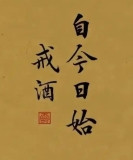 自今日始
戒酒